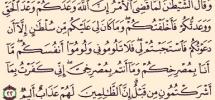 وَقَالَ ٱلشَّيْطَٰنُ لَمَّا قُضِىَ ٱلْأَمْرُ إِنَّ ٱللَّهَ وَعَدَكُمْ وَعْدَ ٱلْحَقِّ
وَوَعَدتُّكُمْ فَأَخْلَفْتُكُمْ وَمَا كَانَ لِىَ عَلَيْكُم مِّن سُلْطَٰنٍ إِلَّآ أَن
دَعَوْتُكُمْ فَٱسْتَجَبْتُمْ لِى فَلَا تَلُومُونِى وَلُومُوٓا۟ أَنفُسَكُم مَّآ
أَنَا۠ بِمُصْرِخِكُمْ وَمَآ أَنتُم بِمُصْرِخِىَّ إِنِّى كَفَرْتُ بِمَآ
أَشْرَكْتُمُونِ مِن قَبْلُ إِنَّ ٱلظَّٰلِمِينَ لَهُمْ عَذَابٌ أَلِيمٌ ٢٢